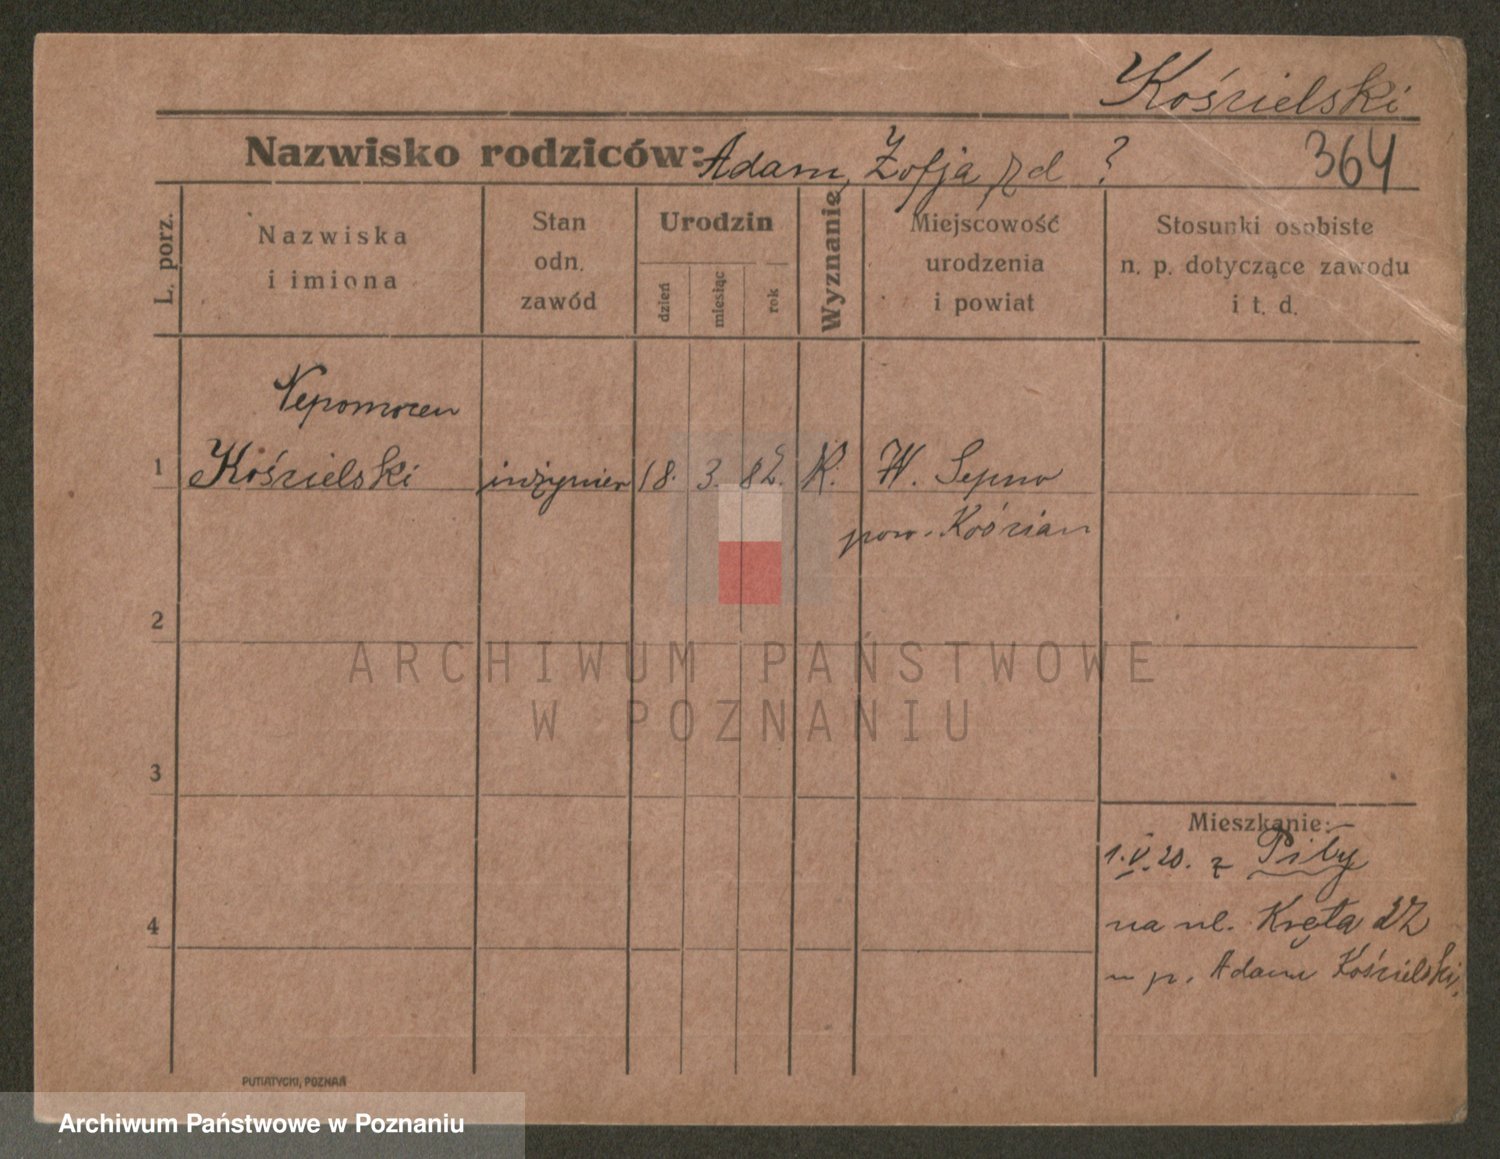 Kościelski
Nazwisko rodziców: Adam, Zofja rd ?
364
L. porz.
Nazwiska
i imiona
Stan
odn.
zawód
Urodzin
dzień
miesiąc
rok
Wyznanie
Miejscowość
urodzenia
i powiat
Stosunki osobiste
n. p. dotyczące zawodu
i t. d.
Nepomucen
1 Kościelski inżynier 18. 3. 82. K. W. Sepno
pow. Kościan
2
ARCHIWUM PAŃSTWOWE
W POZNANIU
3
Mieszkanie:
1.V.20. z Piły
4
na ul. Kręta 22
u p. Adama Kościelski.
PUTIATYCKI, POZNAŃ
Archiwum Państwowe w Poznaniu